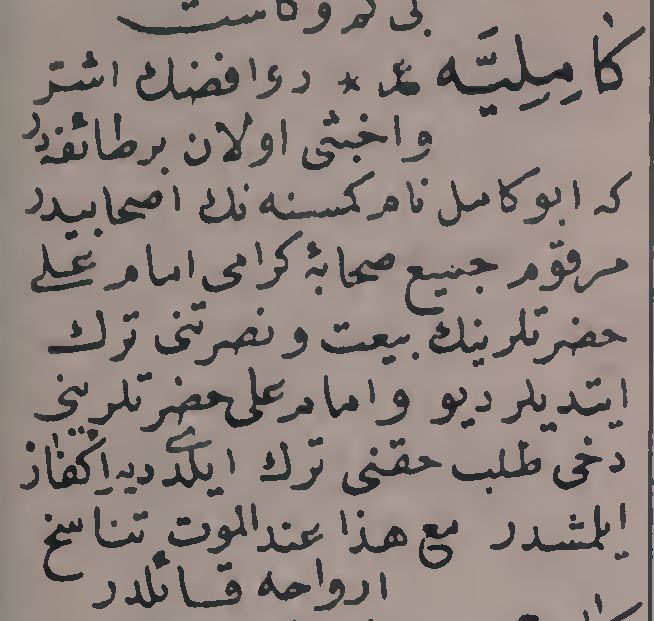 بی کم و کاست
كَامِلِيَّه ع * روافضك اشتر
واخبثی اولان بر طائفه در
كه ابو كامل نام كمسنه نك اصحابيدر
مرقوم جميع صحابۀ كرامی امام علی
حضرتلرينك بيعت ونصرتنی ترك
ايتديلر ديو وامام علی حضرتلرينی
دخی طلب حقنی ترك ايلدی ديه اكفار
ايلمشدر مع هذا عند الموت تناسخ
ارواحه قائلدر